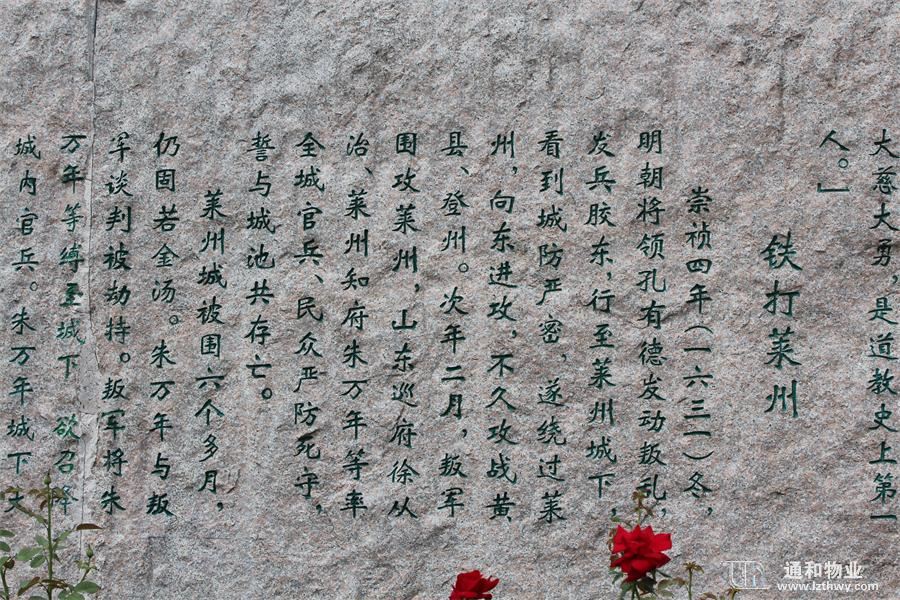 大慈大勇,是道教史上第一
人。」
铁打莱州
崇祯四年(一六三一)冬,
明朝将领孔有德发动叛乱,
发兵胶东,行至莱州城下,
看到城防严密,遂绕过莱
州,向东进攻,不久攻战黄
县、登州。次年二月,叛军
围攻莱州,山东巡府徐从
治、莱州知府朱万年等率
全城官兵、民众严防死守,
誓与城池共存亡。
莱州城被围六个多月,
仍固若金汤。朱万年与叛
军谈判被劫持。叛军将朱
万年等缚至城下 欲召降
城内官兵。朱万年城下大
通和物业
www.lzthwy.com